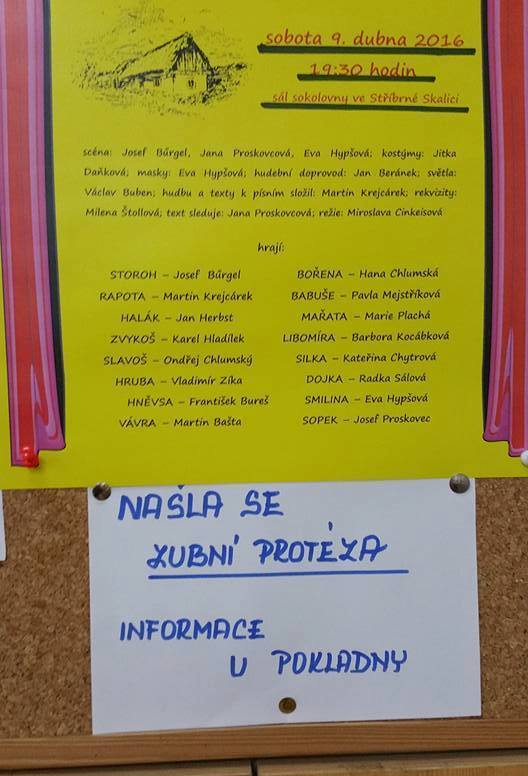 sobota 9. dubna 2016
19:30 hodin
sál sokolovny ve Stříbrné Skalici
scéna: Josef Bűrgel, Jana Proskovcová, Eva Hypšová; kostýmy: Jitka
Daňková; masky: Eva Hypšová; hudební doprovod: Jan Beránek; světla:
Václav Buben; hudbu a texty k písním složil: Martin Krejcárek; rekvizity:
Milena Štollová; text sleduje: Jana Proskovcová; režie: Miroslava Cinkeisová
hrají:
STOROH – Josef Bűrgel
RAPOTA – Martin Krejcárek
HALÁK – Jan Herbst
ZVYKOŠ – Karel Hladílek
SLAVOŠ – Ondřej Chlumský
HRUBA – Vladimír Zíka
HNĚVSA – František Bureš
VÁVRA – Martin Bašta
BOŘENA – Hana Chlumská
BABUŠE – Pavla Mejstříková
MAŘATA – Marie Plachá
LIBOMÍRA – Barbora Kocábková
SILKA – Kateřina Chytrová
DOJKA – Radka Sálová
SMILINA – Eva Hypšová
SOPEK – Josef Proskovec
NAŠLA SE
ZUBNÍ PROTÉZA
INFORMACE
U POKLADNY